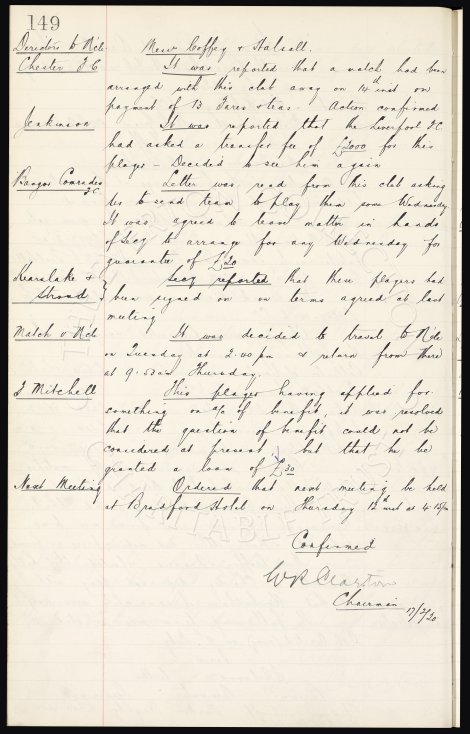 149
Directors to N'cle Messrs Coffey & Halsall.
Chester F C It was reported that a match had been
arranged with this club away on 14th inst on
payment of 13 Fares & teas. Action confirmed
Jenkinson It was reported that the Liverpool F.C.
had asked a transfer fee of £2000 for this
player – Decided to see him again
Bangor Comrades F C Letter was read from this club asking
us to send team to play them some Wednesday
It was agreed to leave matter in hands
of Secy to arrange for any Wednesday for
guarantee of £20
Kearslake & Stroud Secy reported that these players had
been signed on on terms agreed at last
meeting
Match v N'cle It was decided to travel to N'cle
on Tuesday at 2.00 pm & return from there
at 9.53 am Thursday.
J Mitchell This player having applied for
something on a/c of benefit, it was resolved
that the question of benefit could not be
considered at present, but that he be
granted a loan of £30
Next Meeting Ordered that next meeting be held
at Bradford Hotel on Thursday 12th inst at 4.15 pm
Confirmed
W R Clayton
Chairman 17/2/20